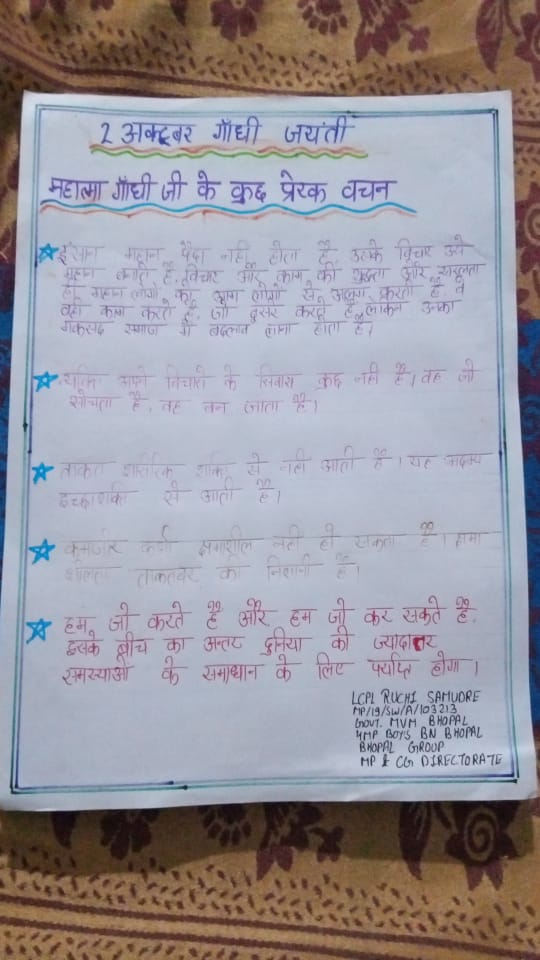 2 अक्टूबर गाँधी जयंती
महात्मा गाँधी जी के कुछ प्रेरक वचन
इंसान महान पैदा नही होता है, उसके विचार उसे
महान बनाते है, विचार और काम की शुद्धता और सरलता
ही महान लोगो को आम लोगो से अलग करती है, वे
वही काम करते है, जो दुसरे करते है, लेकिन उनका
मकसद समाज में बदलाव लाना होता है।
व्यक्ति अपने विचारो के सिवाय कुछ नही है। वह जो
सोचता है, वह बन जाता है।
ताकत शारीरिक शक्ति से नही आती है। यह अदम्य
इच्छाशक्ति से आती है।
कमजोर कभी क्षमाशील नही हो सकता है। क्षमा
शीलता ताकतवर की निशानी है।
हम जो करते है और हम जो कर सकते है,
इसके बीच का अन्तर दुनिया की ज्यादातर
समस्याओं के समाधान के लिए पर्याप्त होगा।
LCPL RUCHI SAMUDRE
MP/19/SW/A/103213
GOVT. MVM BHOPAL
4MP BOYS BN BHOPAL
BHOPAL GROUP
MP & CG DIRECTORATE